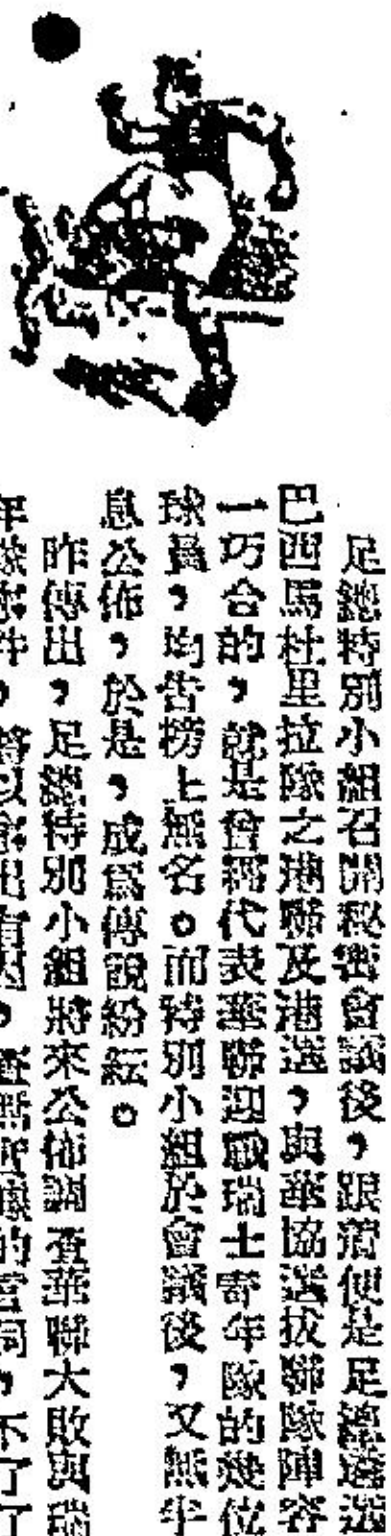 足總特別小組召開秘密會議後，跟着便是足總選派
巴西馬杜里拉隊之港聯及港選，與華協選拔聯隊陣容
一巧合的，就是曾經代表華聯迎戰瑞士青年隊的幾位
球員，均告榜上無名。而特別小組於會議後，又無半
息公佈，於是，成爲傳說紛紜。
昨傳出，足總特別小組將來公佈調查華聯大敗與瑞
年隊事件，將以事出有因，查無實據的官詞，不了了